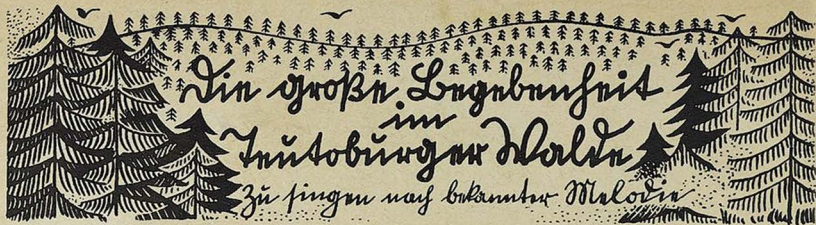 Die große Begebenheit
im
Teutoburger Walde
Zu singen nach bekannter Melodie